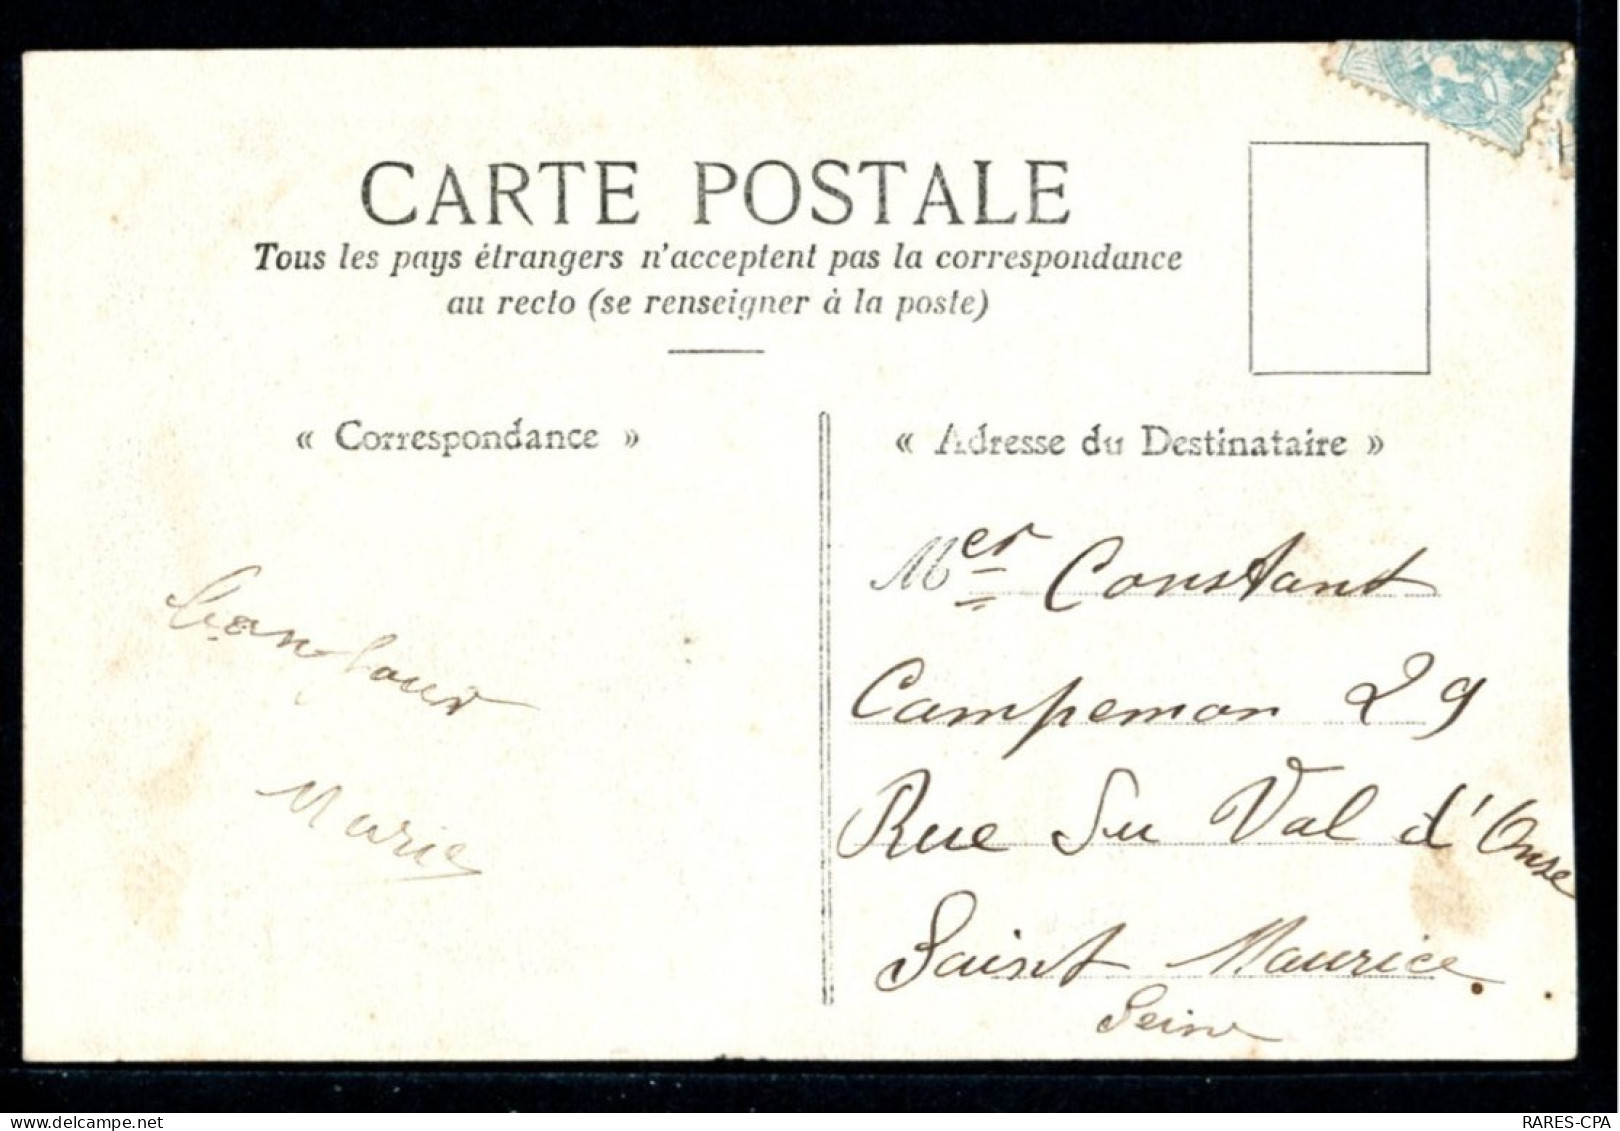 CARTE POSTALE
Tous les pays étrangers n'acceptent pas la correspondance
au recto (se renseigner à la poste)
« Correspondance »
« Adresse du Destinataire »
Mer Constant
Campemon 29
Rue Du Val d'Onze
Saint Maurice.
Seine
Marie
RARES-CPA